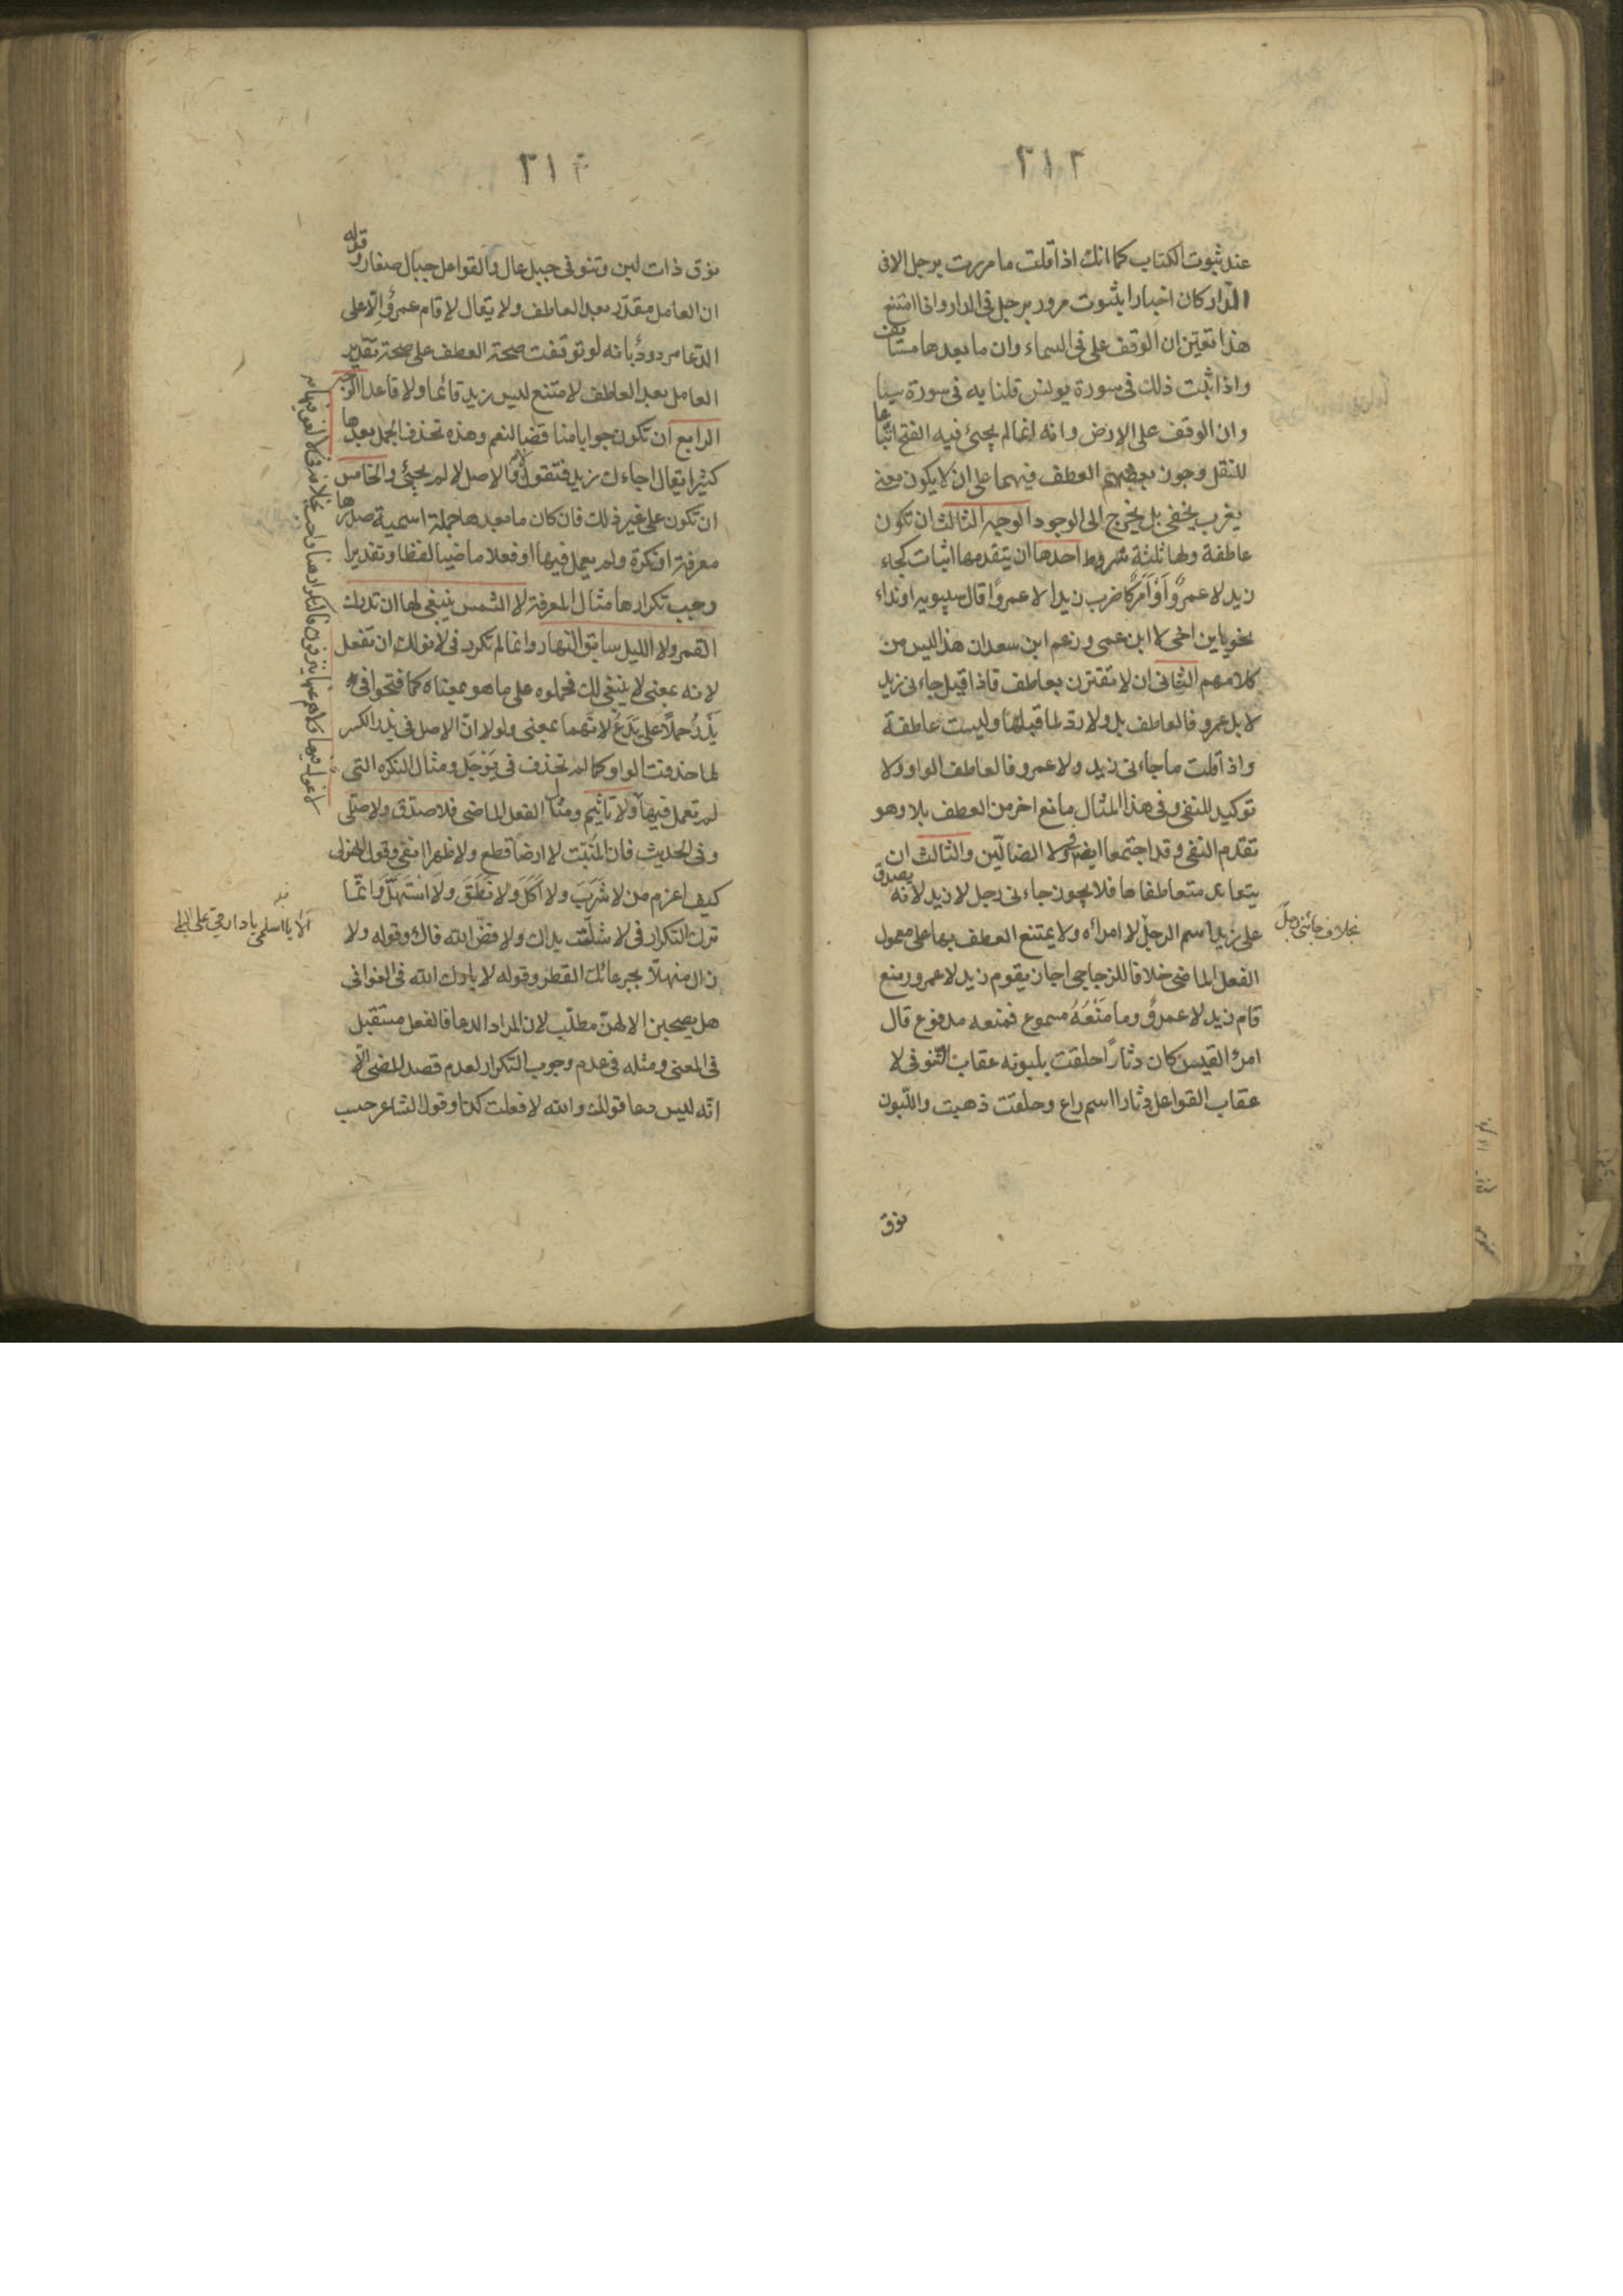 ٢١٢
عند ثبوت الكتاب كما انك اذا قلت ما مررت برجل الا فى
الدار كان اخبارا بثبوت مرور برجل فى الدار واذا امتنع
هذا تعيّن ان الوقف على فى السماء وان ما بعدها مستانف
واذا ثبت ذلك فى سورة يونس قلنا به فى سورة سبا
وان الوقف على الارض وانه انما لم يجئ فيه الفتح اتباعا
للنقل وجوز بعضهم العطف فيهما على ان لا يكون معنى
يعزب يخفى بل يخرج الى الوجود الوجه الثالث ان تكون
عاطفة ولها ثلثة شروط احدها ان يتقدمها اثبات كجاء
زيد لا عمرٌو اَوْ اَمرٌ كاضرب زيدا لا عمروًا قال سيبويه او نداء
نحو يا بن اخى لا ابن عمى وزعم ابن سعدان هذا ليس من
كلامهم الثانى ان لا تقترن بعاطف فاذا قيل جاءنى زيد
لا بل عمرو فالعاطف بل ولا ردّ لما قبلها وليست عاطفة
واذا قلت ما جاءنى زيد ولا عمرو فالعاطف الواو ولا
توكيد للنفى وفى هذا المثال مانع اخر من العطف بلا وهو
تقدّم النفى وقد اجتمعا ايضا فى ولا الضالّين والثالث ان
يتعاند متعاطفاها فلا يجوز جاءنى رجل لا زيد لانه يصدق
على زيد اسم الرجل لا امراه ولا يمتنع العطف بها على معمول
بخلاف جائنى رجل
الفعل الماضى خلافا للزجاجى اجاز يقوم زيد لا عمرو ومنع
قام زيد لا عمرٌو وما مَنَعَهُ مسموع فمنعه مدفوع قال
امرؤ القيس كان دثارًا حلقت بلبونه عقاب تنوفى لا
عقاب القواعل دثارا اسم راع وحلقت ذهبت واللّبون
نوق
٢١٣
نوق ذات لبن وتنوفى جبل عال والقواعل جبال صغار وقوله
ان العامل مقدّر بعد العاطف ولا يقال لا قام عمرٌو اِلّا على
الدّعا مردودٌ بانه لو توقفت صحة العطف على صحة تقدير
العامل بعد العاطف لامتنع ليس زيد قائما ولا قاعدا الوجه
الرابع ان تكون جوابا مناقضا لنعم وهذه تحذف الجمل بعدها
كثيرا يقال اجاءك زيد فتقول لا والاصل لا لم يجئ والخامس
ان تكون على غير ذلك فان كان ما بعدها جملة اسمية صدرها
معرفة او نكرة ولم يعمل فيها او فعلا ماضيا لفظا وتقديرا
وجب تكرارها مثال المعرفة لا الشمس ينبغى لها ان تدرك
القمر ولا الليل سابق النهار وانما لم تكرر فى لا نولك ان تفعل
لانه بمعنى لا ينبغى لك فحملوه على ما هو بمعناه كما فتحوا فى
يَذَرُ حملاً على يَدَعُ لانّهما بمعنى ولولا انّ الاصل فى يذر الكسر
لما حذفت الواو كما لم تحذف فى يَوْجَل ومثال النكره التى
لم تعمل فيها ولا تاثيم ومثال الفعل الماضى فلا صدّق ولا صلّى
وفى الحديث فان المُنبَتّ لا ارضا قطع ولا ظهرا ابقى وقول الهزلى
كيف اغرم من لا شَرِبَ ولا اَكَلَ ولا نَطَقَ ولا استَهَلَّ وانّما
ترك التكرار فى لا شلّت يداك ولا فضّ الله فاك وقوله ولا
الا يا اسلمى يا دار مى على البلى
زال منهلاّ بجرعائك القطر وقوله لا بارك الله فى الغوانى
هل يصبحن الا لهنّ مطلّب لان المراد الدعا فالفعل مستقبل
فى المعنى ومثله فى عدم وجوب التكرار لعدم قصد المضى الّا
انّه ليس دعا قولك والله لا فعلت كذا وقول الشاعر حسب